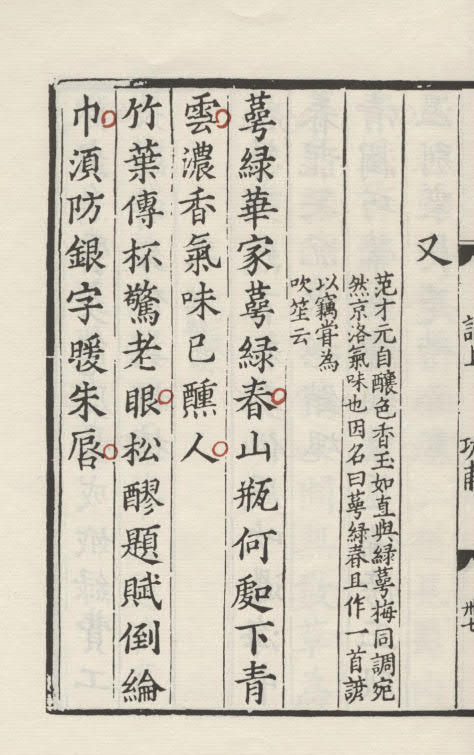 又
范才元自釀色香玉如直與綠萼梅同調宛
然京洛氣味也因名曰萼綠春且作一首諺
以竊嘗為
吹笙云
萼綠華家萼綠春山瓶何處下青
雲濃香氣味已醺人
竹葉傳杯驚老眼松醪題賦倒綸
巾湏防銀字暖朱唇